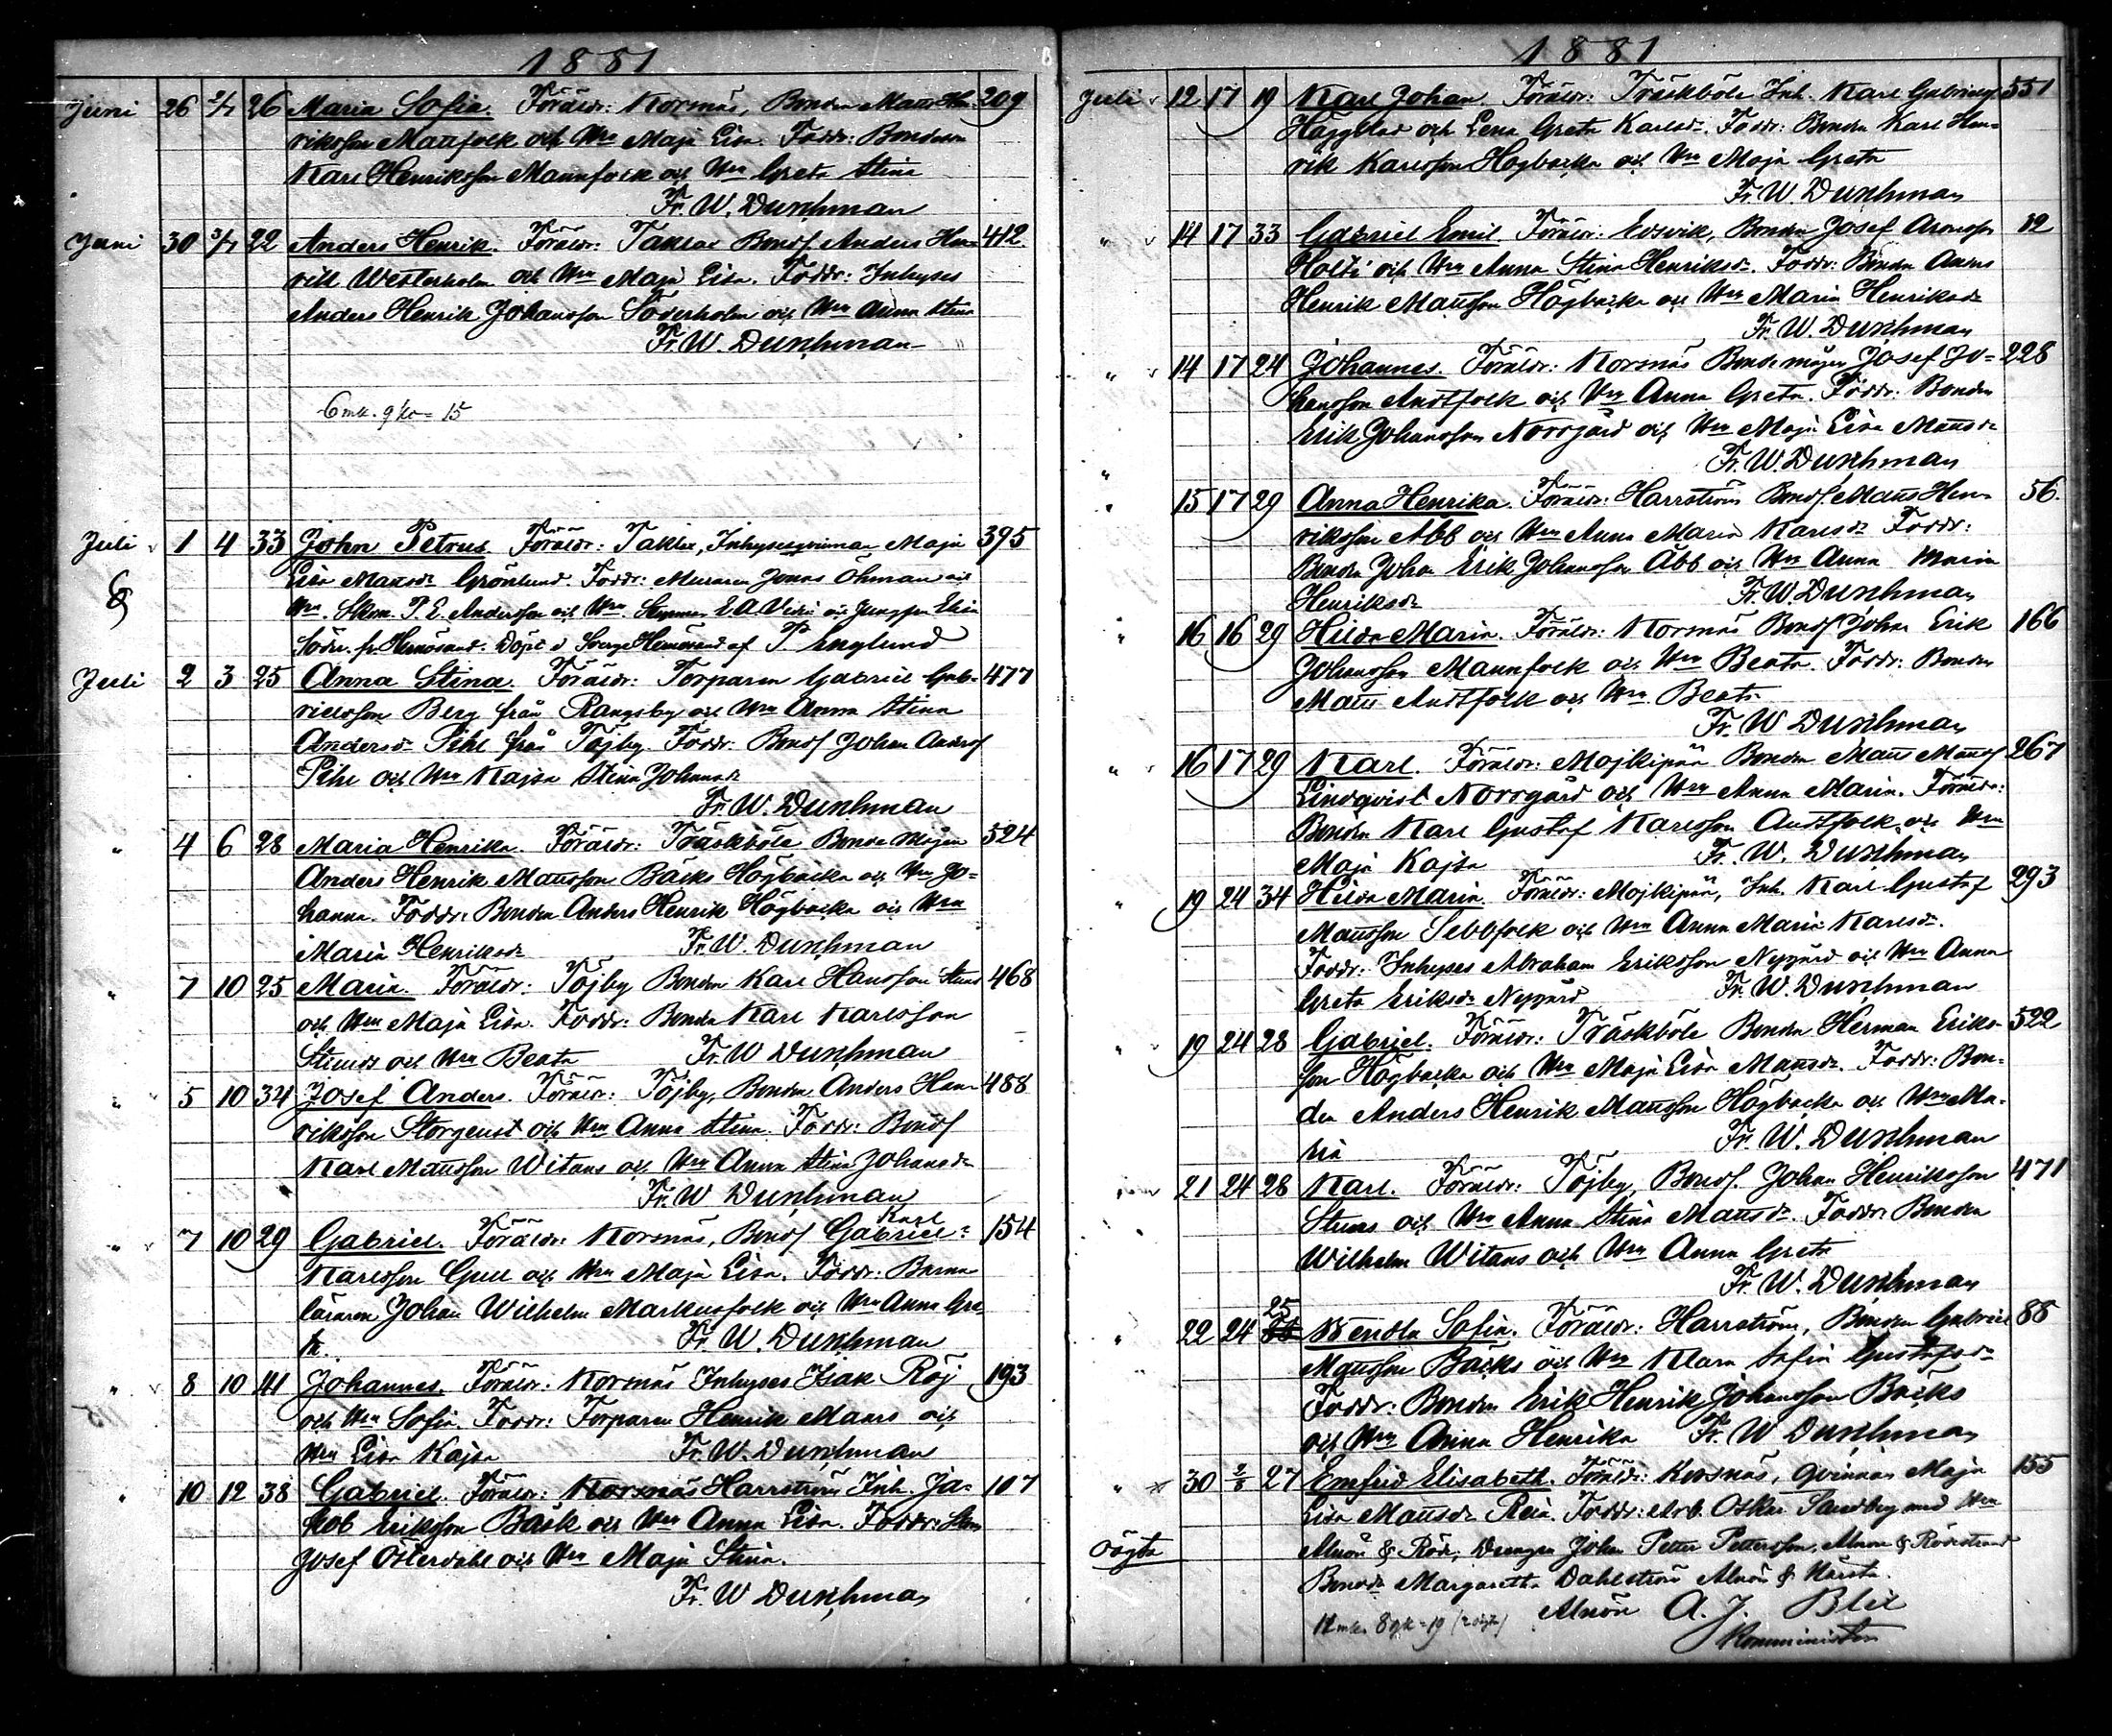 1881
Juni 26 2/7 26 Maria Sofia. Föräldr: Korsnäs, Bonden Matts Hen- 209
riksson Mattfolk och Hru Maja Lisa. Faddr: Bondesn
Karl Henriksson Mannfolk och Hru Greta Stina
Fr. W. Durchman
Juni 30 3/7 22 Anders Henrik. Föräldr: Taklax Bonds. Anders Hen- 412
rik Westerholm och Hru Maja Lisa. Faddr: Inhyses
Anders Henrik Johansson Söderholm och Hru Anna Stina
Fr. W. Durchman
6 mk. 9 = 15
Juli 1 4 33 John Petrus. Föräldr: Taklax, Inhysesqvinnan Maja 395
Lisa Mattsdr Grönlund. Faddr: Muraren Jonas Öhman och
Hru. P. E. Andersson och Hru. E. A. och Jungfru
fr. Hernösand. Döpt i Sverge Hernösand af P. Englund
Juli 2 3 25 Anna Stina. Föräldr: Torparen Gabriel Gab- 477
rielsson Berg från Rangsby och Hru Anna Stina
Andersdr Pihl från Töjby. Faddr: Bonds Johan Anders
Pihl och Hru Kajsa Stina Johansdr
Fr. W. Durchman
" 4 6 28 Maria Henrika. Föräldr: Träskböle Bonde mågen 524
Anders Henrik Mattsson Bäcks Högbacka och Hru Jo-
hanna. Faddr: Bonden Anders Henrik Högbacka och Hru
Maria Henriksdr Fr. W. Durchman
" 7 10 25 Maria. Föräldr: Töjby Bonden Karl Hansson Stuns 468
och Hru Maja Lisa. Faddr: Bonden Karl Karlsson
Stuns och Hru Beata Fr. W Durchman
" 5 10 34 Josef Anders. Föräldr: Töjby, Bonden Anders Hen- 488
riksson Storgeust och Hru Anna Stina. Faddr: Bonds
Karl Mattsson Witans och Hru Anna Stina Johansdr
Fr. W Durchman
Karl
" 7 10 29 Gabriel. Föräldr: Korsnäs, Bonds Gabriel- 154
Karlsson Gull och Hru Maja Lisa. Faddr: Barna
läraren Johan Wilhelm Markusfolk och Hru Anna Gre
ta. Fr. W. Durchman
" 8 10 41 Johannes. Föräldr: Korsnäs Inhyses Isak Röj 193
och Hru Sofia. Faddr: Torparen Henrik Manns och
Hru Lisa Kajsa Fr. W. Durchman
" 10 12 38 Gabriel. Föräldr: Korsnäs Harrström Inh. Ja- 107
kob Eriksson Bäck och Hru Anna Lisa. Faddr:
Josef Österdahl och Hru Maja Stina.
Fr. W Durchman
1881
Juli 12 17 19 Karl Johan. Föräldr: Träskböle Inh. Karl Gabriels 551
Häggblad och Lena Greta Karlsdr. Faddr: Bonden Karl Hen-
rik Karlsson Högbacka och Hru Maja Greta
Fr. W. Durchman
" 14 17 33 Gabriel Emil. Föräldr: Edsvik, Bonden Josef Aronsson 12
Holti och Hru Anna Stina Henriksdr. Faddr: Bonden Anders
Henrik Mattsson Högbacka och Hru Maria Henriksdr
Fr. W. Durchman
" 14 17 24 Johannes. Föräldr: Korsnäs Bondemågen Josef Jo- 228
hansson Andtfolk och Hru Anna Greta. Faddr: Bonden
Erik Johansson Norrgård och Hru Maja Lisa Mattsdr
Fr. W. Durchman
" 15 17 29 Anna Henrika. Föräldr: Harrström Bonds. Matts Hen- 56.
riksson Abb och Hru Anna Maria Karlsdr Faddr:
Bonden Johan Erik Johansson Abb och Hru Anna Maria
Henriksdr Fr. W. Durchman
" 16 16 29 Hilda Maria. Föräldr: Korsnäs Bonds Johan Erik 166
Johansson Mannfolk och Hru Beata. Faddr: Bonden
Matts Andtfolk och Hru Beata
Fr. W Durchman
" 16 17 29 Karl. Föräldr: Mojkipää Bonden Matts Matts 267
Lindqvist Norrgård och Hru Anna Maria. Föräldr:
Bonden Karl Gustaf Karlsson Andtfolk och Hru
Maja Kajsa Fr. W. Durchman
" 19 24 34 Hilda Maria. Föräldr: Mojkipää, Inh. Karl Gustaf 293
Mattsson Sebbfolk och Hru Anna Maria Karlsdr.
Faddr: Inhyses Abraham Eriksson Nygård och Hru Anna
Greta Eriksdr Nygård Fr. W. Durchman
" 19 24 28 Gabriel. Föräldr: Träskböle Bonden Herman Eriks- 522
son Högbacka och Hru Maja Lisa Mattsdr. Faddr: Bon-
den Anders Henrik Mattsson Högbacka och Hru Ma-
ria Fr. W. Durchman
21 24 28 Karl. Föräldr: Töjby, Bonds. Johan Henriksson 471
Stuns och Hru Anna Stina Mattsdr. Faddr: Bonden
Wilhelm Witans och Hru Anna Greta
Fr. W. Durchman
25
" 22 24 Wendla Sofia. Föräldr: Harrström, Bonden Gabriel 88
Mattsson Bäcks och Hru Klara Sofia Gustafsdr
Faddr: Bonden Erik Henrik Johansson Bäcks
och Hru Anna Henrika Fr. W Durchman
" 30 2/8 27 Emfrid Elisabeth. Föräldr: Korsnäs, qvinnan Maja 155
Lisa Mattsdr. Faddr: Arb. Oskar Sandberg med Hru
oägta Alnön & Röd, Drengen Johan Petter Pettersson, Alnön & Rödestrand
Margaretha Dahlström Alnön &
12 mk. 8 = 19 (2 oägt.) Alnön A. J. Blix
Komminister